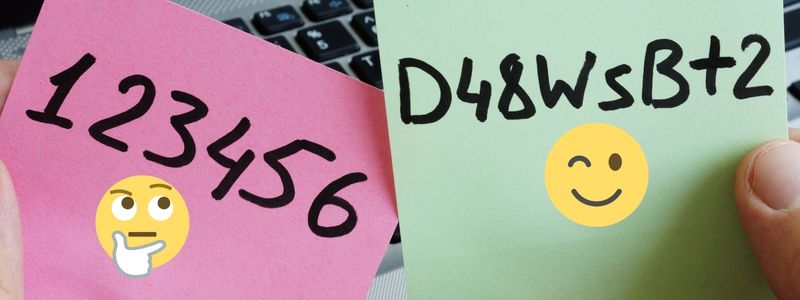 123456
D48WsB+2